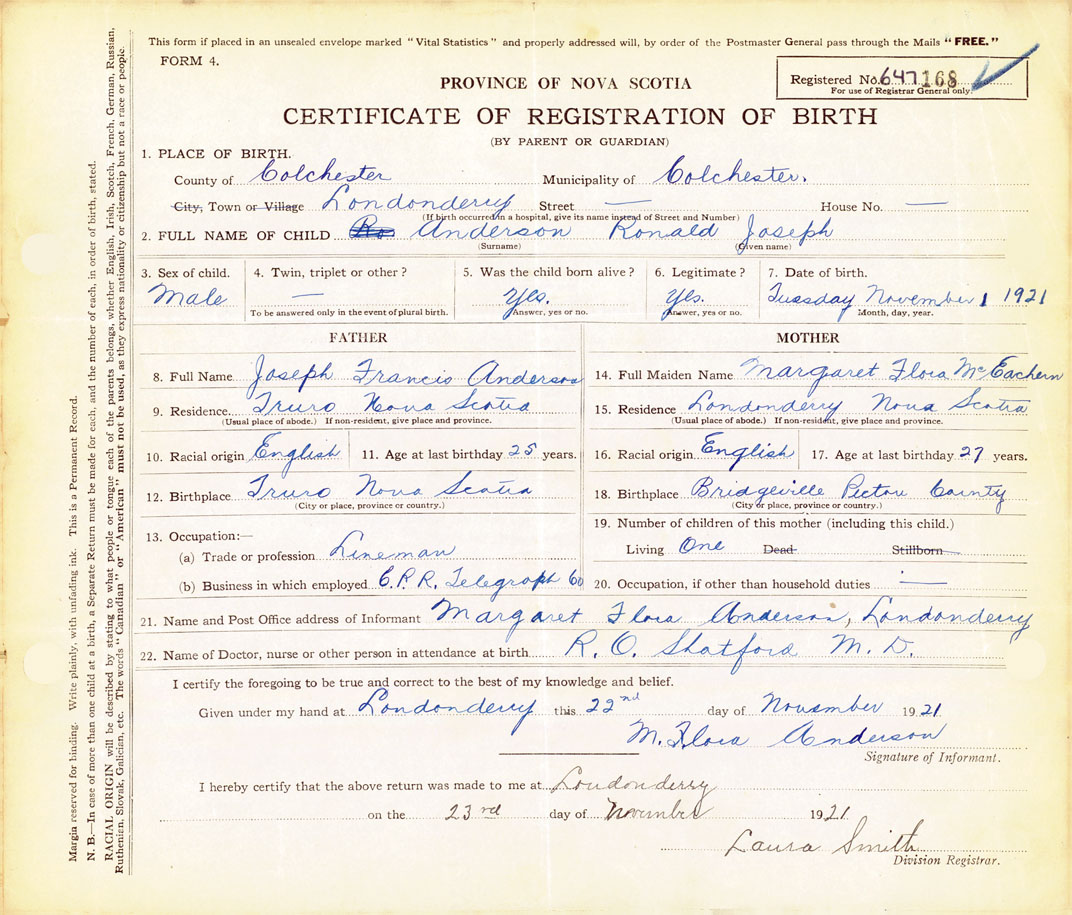 This form if placed in an unsealed envelope marked "Vital Statistics" and properly addressed will, by order of the Postmaster General pass through the Mails "FREE."
FORM 4.
Registered No. 647168
For use of Registrar General only.
PROVINCE OF NOVA SCOTIA
CERTIFICATE OF REGISTRATION OF BIRTH
(BY PARENT OR GUARDIAN)
1. PLACE OF BIRTH.
County of Colchester Municipality of Colchester.
City, Town or Village Londonderry Street — House No. —
(If birth occurred in a hospital, give its name instead of Street and Number)
2. FULL NAME OF CHILD Anderson Ronald Joseph
(Surname) (Given name)
3. Sex of child. 4. Twin, triplet or other? 5. Was the child born alive? 6. Legitimate? 7. Date of birth.
Male — Yes. Yes. Tuesday November 1 1921
To be answered only in the event of plural birth. Answer, yes or no. Answer, yes or no. Month, day, year.
FATHER MOTHER
8. Full Name Joseph Francis Anderson 14. Full Maiden Name Margaret Flora McEachern
9. Residence Truro Nova Scotia 15. Residence Londonderry Nova Scotia
(Usual place of abode.) If non-resident, give place and province. (Usual place of abode.) If non-resident, give place and province.
10. Racial origin English 11. Age at last birthday 25 years. 16. Racial origin English 17. Age at last birthday 27 years.
12. Birthplace Truro Nova Scotia 18. Birthplace Bridgeville Pictou County
(City or place, province or country.) (City or place, province or country.)
13. Occupation:— 19. Number of children of this mother (including this child.)
(a) Trade or profession Lineman Living One Dead Stillborn
(b) Business in which employed C.P.R. Telegraph Co 20. Occupation, if other than household duties —
21. Name and Post Office address of Informant Margaret Flora Anderson, Londonderry
22. Name of Doctor, nurse or other person in attendance at birth R. O. Shatford M.D.
I certify the foregoing to be true and correct to the best of my knowledge and belief.
Given under my hand at Londonderry this 22nd day of November 1921
M. Flora Anderson
Signature of Informant.
I hereby certify that the above return was made to me at Londonderry
on the 23rd day of November 1921
Laura Smith
Division Registrar.
Margin reserved for binding. Write plainly, with unfading ink. This is a Permanent Record.
N. B.—In case of more than one child at a birth, a Separate Return must be made for each, and the number of each, in order of birth, stated.
RACIAL ORIGIN will be described by stating to what people or tongue each of the parents belongs, whether English, Irish, Scotch, French, German, Russian,
Ruthenian, Slovak, Galician, etc. The words "Canadian" or "American" must not be used, as they express nationality or citizenship but not a race or people.